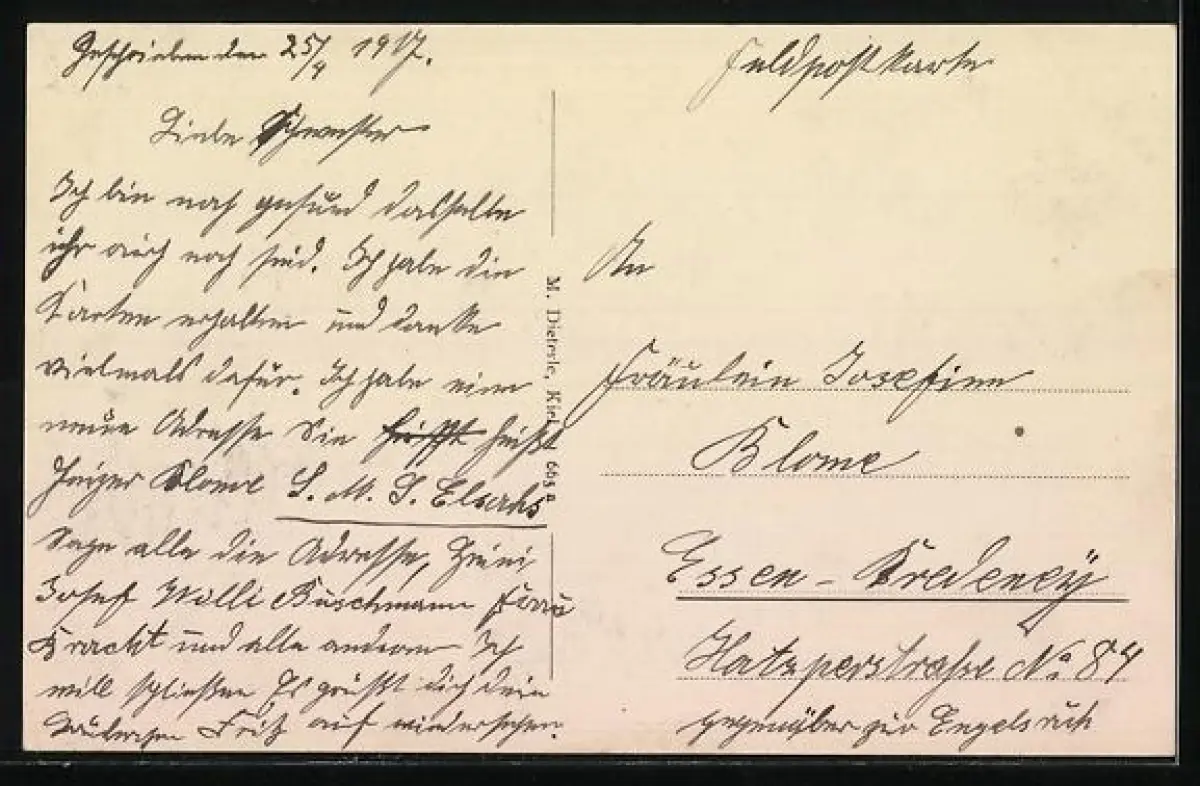 Geschrieben den 25/4 1917.
Liebe Schwester
Ich bin noch gesund dasselbe
ihr auch noch seid. Ich habe die
Karten erhalten und danke
vielmals dafür. Ich habe eine
neue Adresse Sie heißt
Heizer Blome S. M. S. Elsass
Sage alle die Adresse, Heini
Josef Willi Buschmann Frau
Kracht und alle anderen Ich
will schließen Es grüßt dich dein
Fritz auf wiedersehen.
M. Dieterle, Kiel
Feldpostkarte
An
Fräulein Josefine
Blome
Essen - Bredeney
Hatzperstraße No 84
gegenüber zur Engelsruh